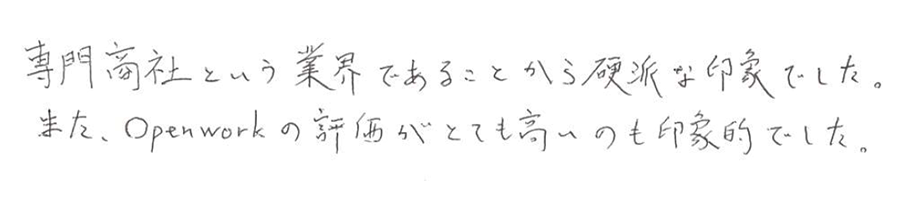 専門商社という業界であることから硬派な印象でした。
また、Openworkの評価がとても高いのも印象的でした。